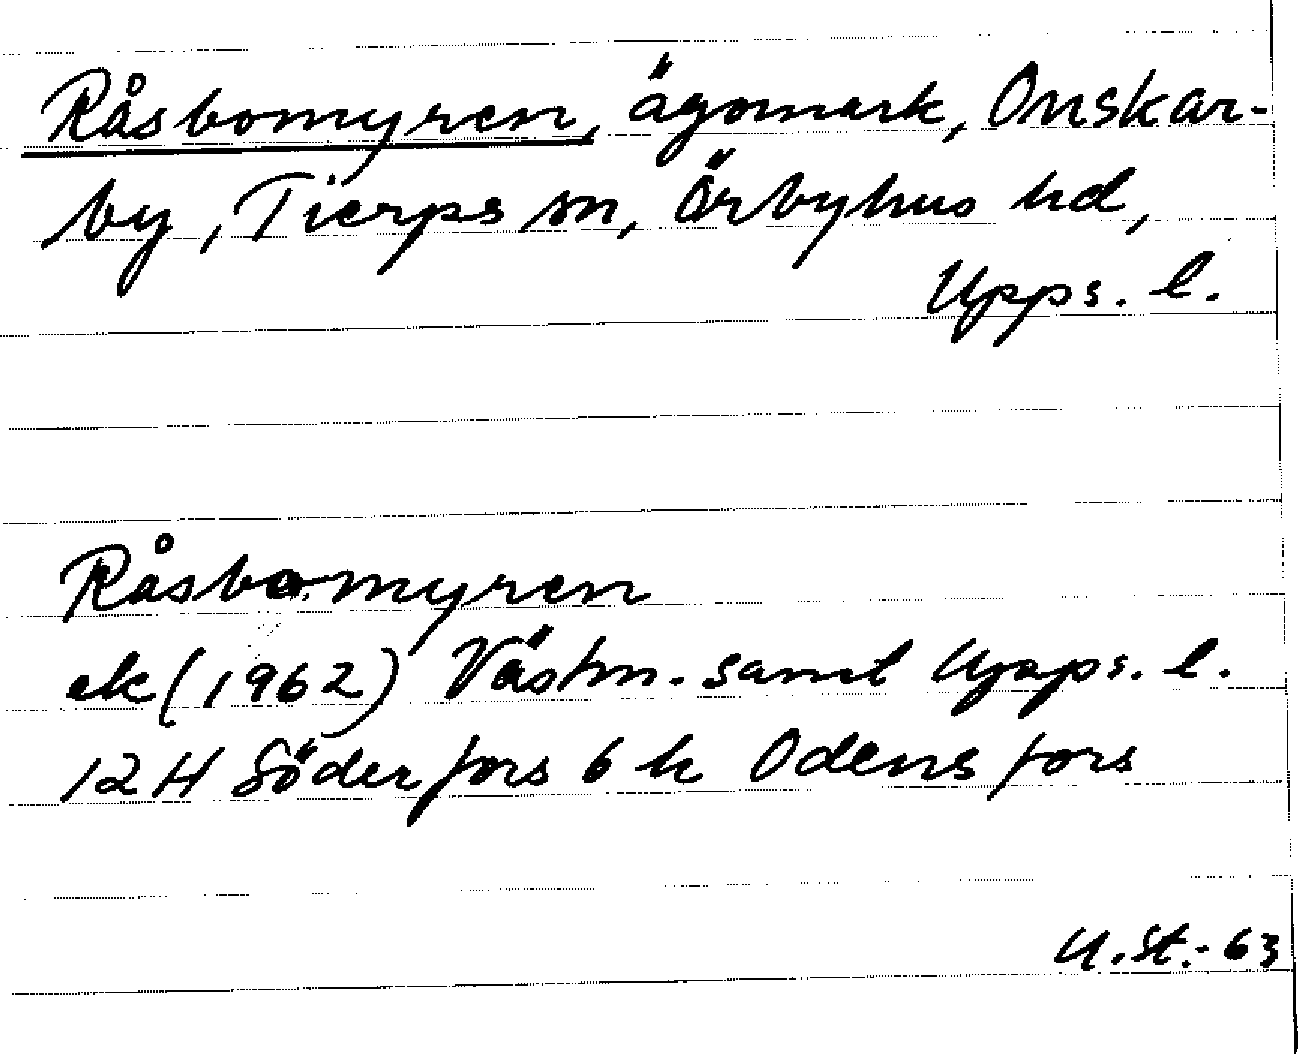 Råsbomyren, ägomark, Onskar-
by, Tierps sn, Örbyhus hd,
Upps. l.
Råsbomyren
ek (1962) Västm. samt Upps. l.
12 H Söderfors 6 h Odensfors
U. St. - 63